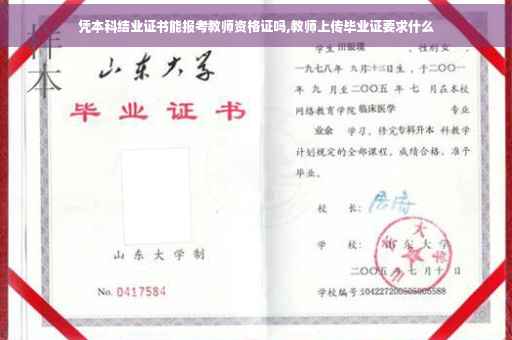 凭本科结业证书能报考教师资格证吗,教师上传毕业证要求什么
样本
山东大学
毕业证书
山东大学制
No. 0417584
学生 性别女，
一九七八年 九月十三日生，于二〇〇一
年 九 月至二〇〇五 年 七 月在本校
网络教育学院 临床医学 专业
业余 学习，修完专科升本 科教学
计划规定的全部课程，成绩合格，准予
毕业。
校 长：
学 校： 山东大学
二〇〇五 年 七 月 十 日
学校编号:104227200505005588